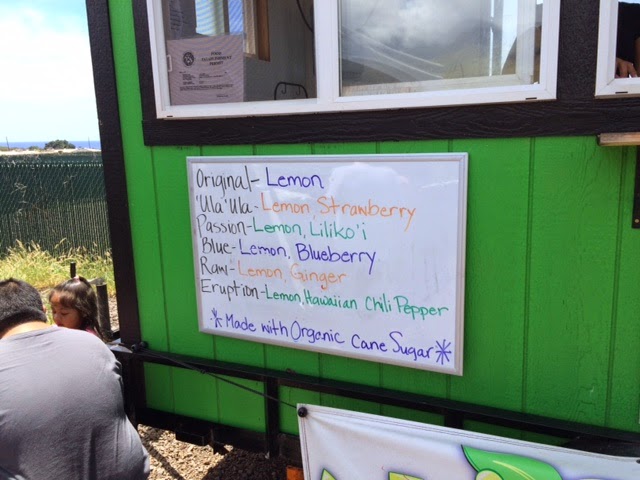 Original - Lemon
'Ula'Ula - Lemon, Strawberry
Passion - Lemon, Liliko'i
Blue - Lemon, Blueberry
Raw - Lemon, Ginger
Eruption - Lemon, Hawaiian Chili Pepper
* Made with Organic Cane Sugar *